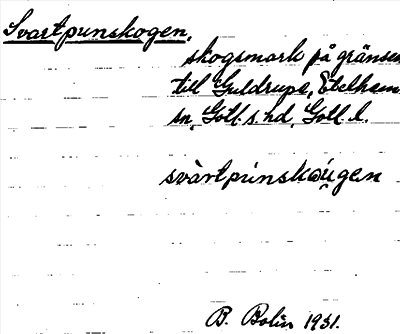 Svartpunskogen,
skogsmark på gränsen
till Guldrupe, Etelhem
sn, Gotl. s. hd, Gotl. l.
svàrtpùnskǫu̯gen
B. Bolin 1931.